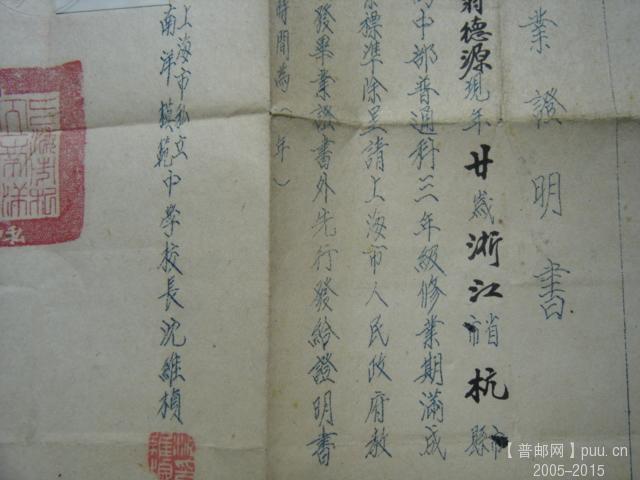 業證明書
翁德源現年廿歲浙江省市杭縣市
中部普通科三年級修業期滿成
標準除呈請上海市人民政府教
發畢業證書外先行發給證明書
時間為一年）
上海市私立
南洋模範中學校長沈維楨
【普邮网】puu.cn
2005-2015